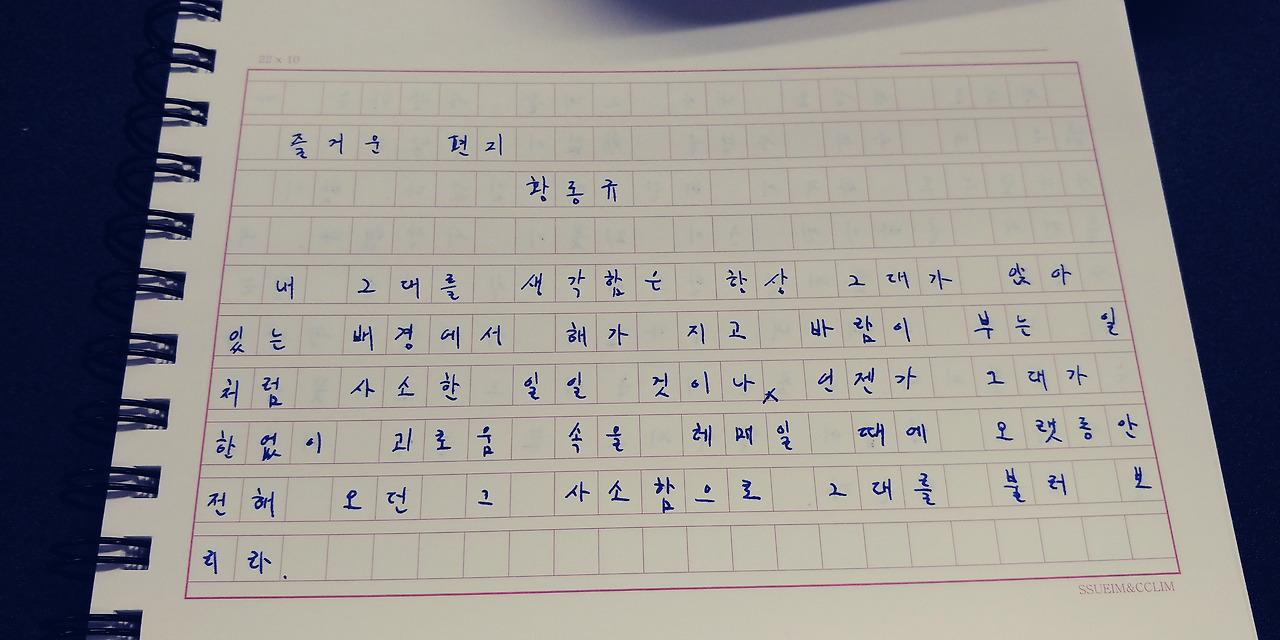 22 x 10
즐거운 편지
황동규
내 그대를 생각함은 항상 그대가 앉아
있는 배경에서 해가 지고 바람이 부는 일
처럼 사소한 일일 것이나, 언젠가 그대가
한없이 괴로움 속을 헤매일 때에 오랫동안
전해 오던 그 사소함으로 그대를 불러 보
리라.
SSUEIM&CCLIM